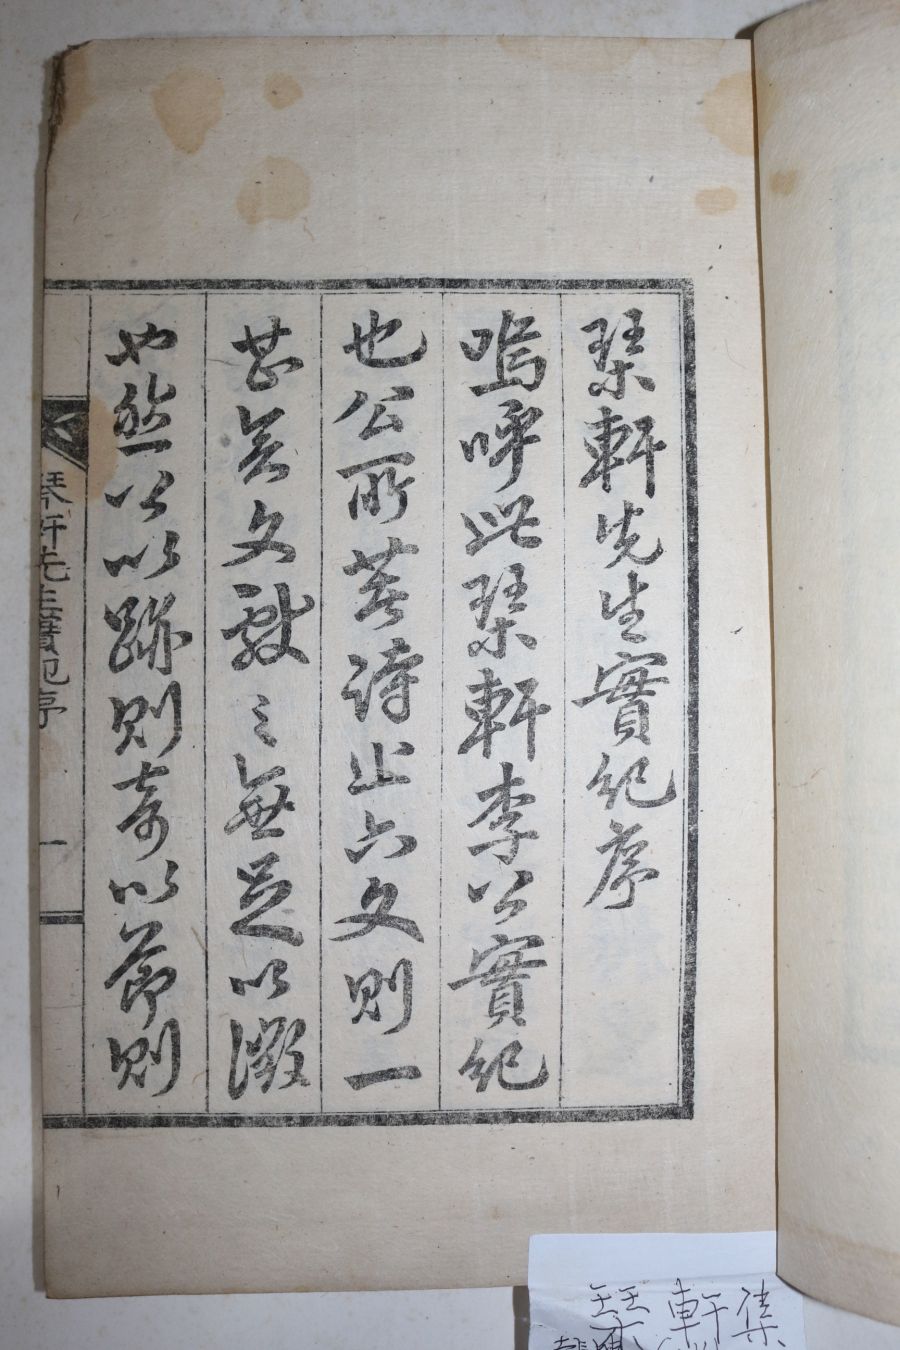 琹軒先生實紀序
嗚呼此琹軒李公實紀
也公所著詩止六文則一
甚矣文獻之無足以徵
也然公以跡則奇以節則
琴軒先生實紀序
一
琹軒集